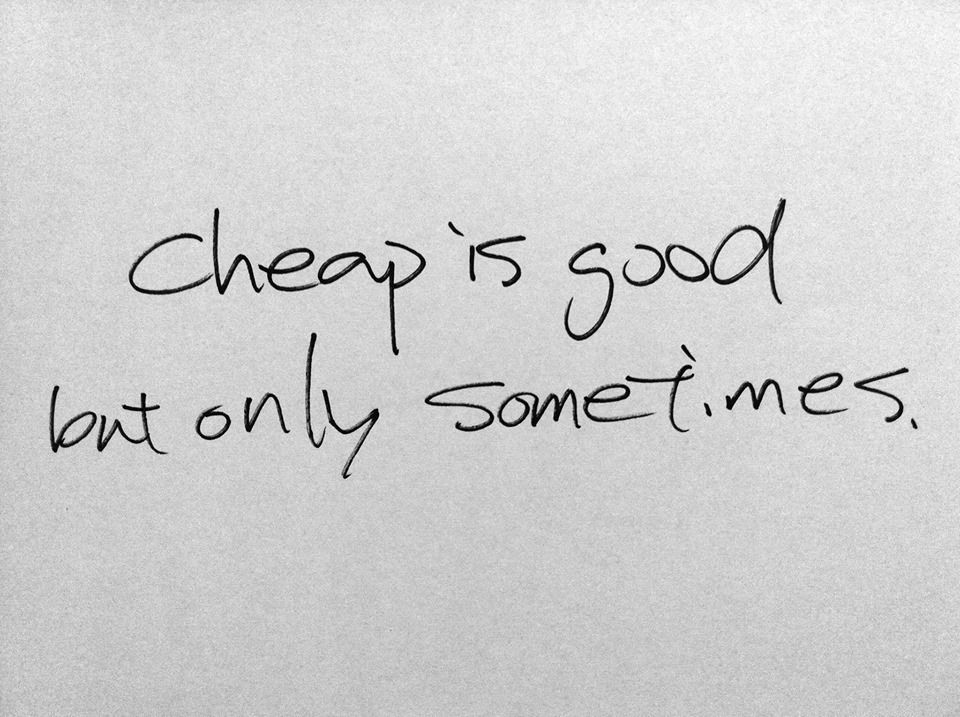 Cheap is good
but only sometimes.